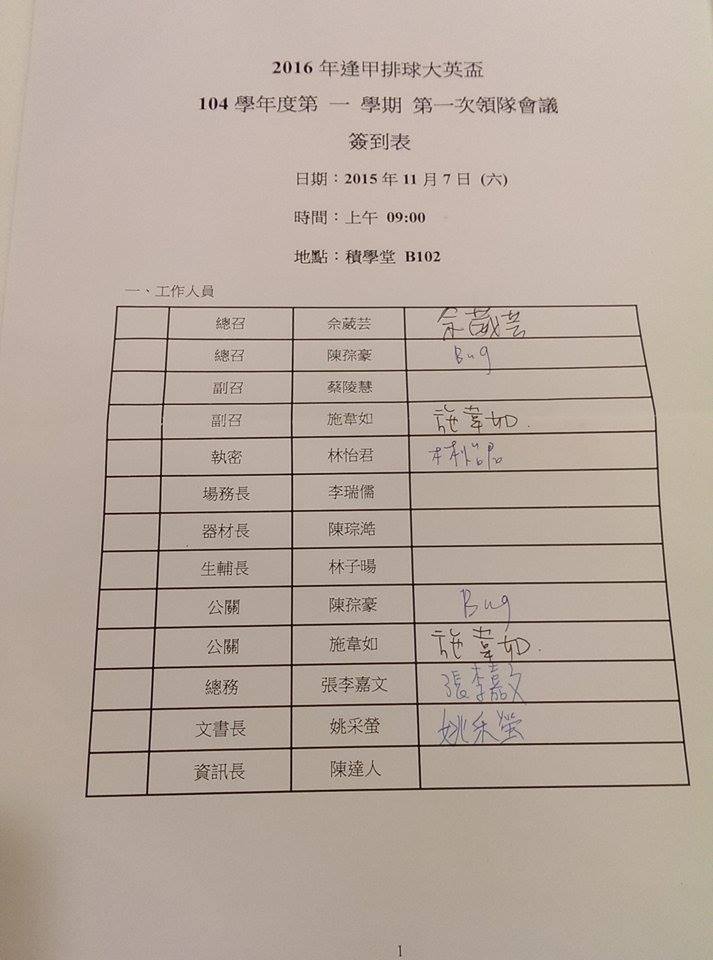 2016 年逢甲排球大英盃
104 學年度第 一 學期 第一次領隊會議
簽到表
日期：2015 年 11 月 7 日 (六)
時間：上午 09:00
地點：積學堂 B102
一、工作人員
總召 佘葳芸 佘葳芸
總召 陳孮豪 Bug
副召 蔡陵慧
副召 施韋如 施韋如.
執密 林怡君 林怡君
場務長 李瑞儒
器材長 陳琮澔
生輔長 林子暘
公關 陳孮豪 Bug
公關 施韋如 施韋如.
總務 張李嘉文 張李嘉文
文書長 姚采螢 姚采螢
資訊長 陳達人
1